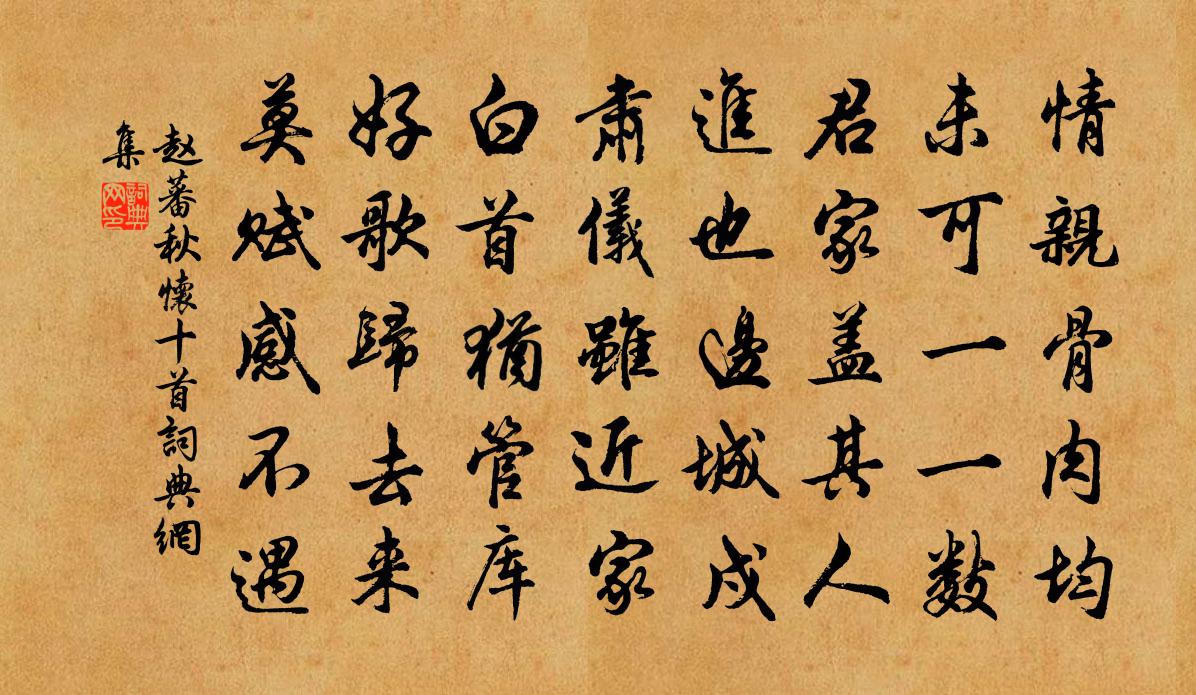 情親骨肉均
未可一一數
君家盖其人
進也邊城戍
肅儀雖近家
白首猶管库
好歌歸去来
莫赋感不遇
赵蕃秋懷十首詞典網
集
詞典网印